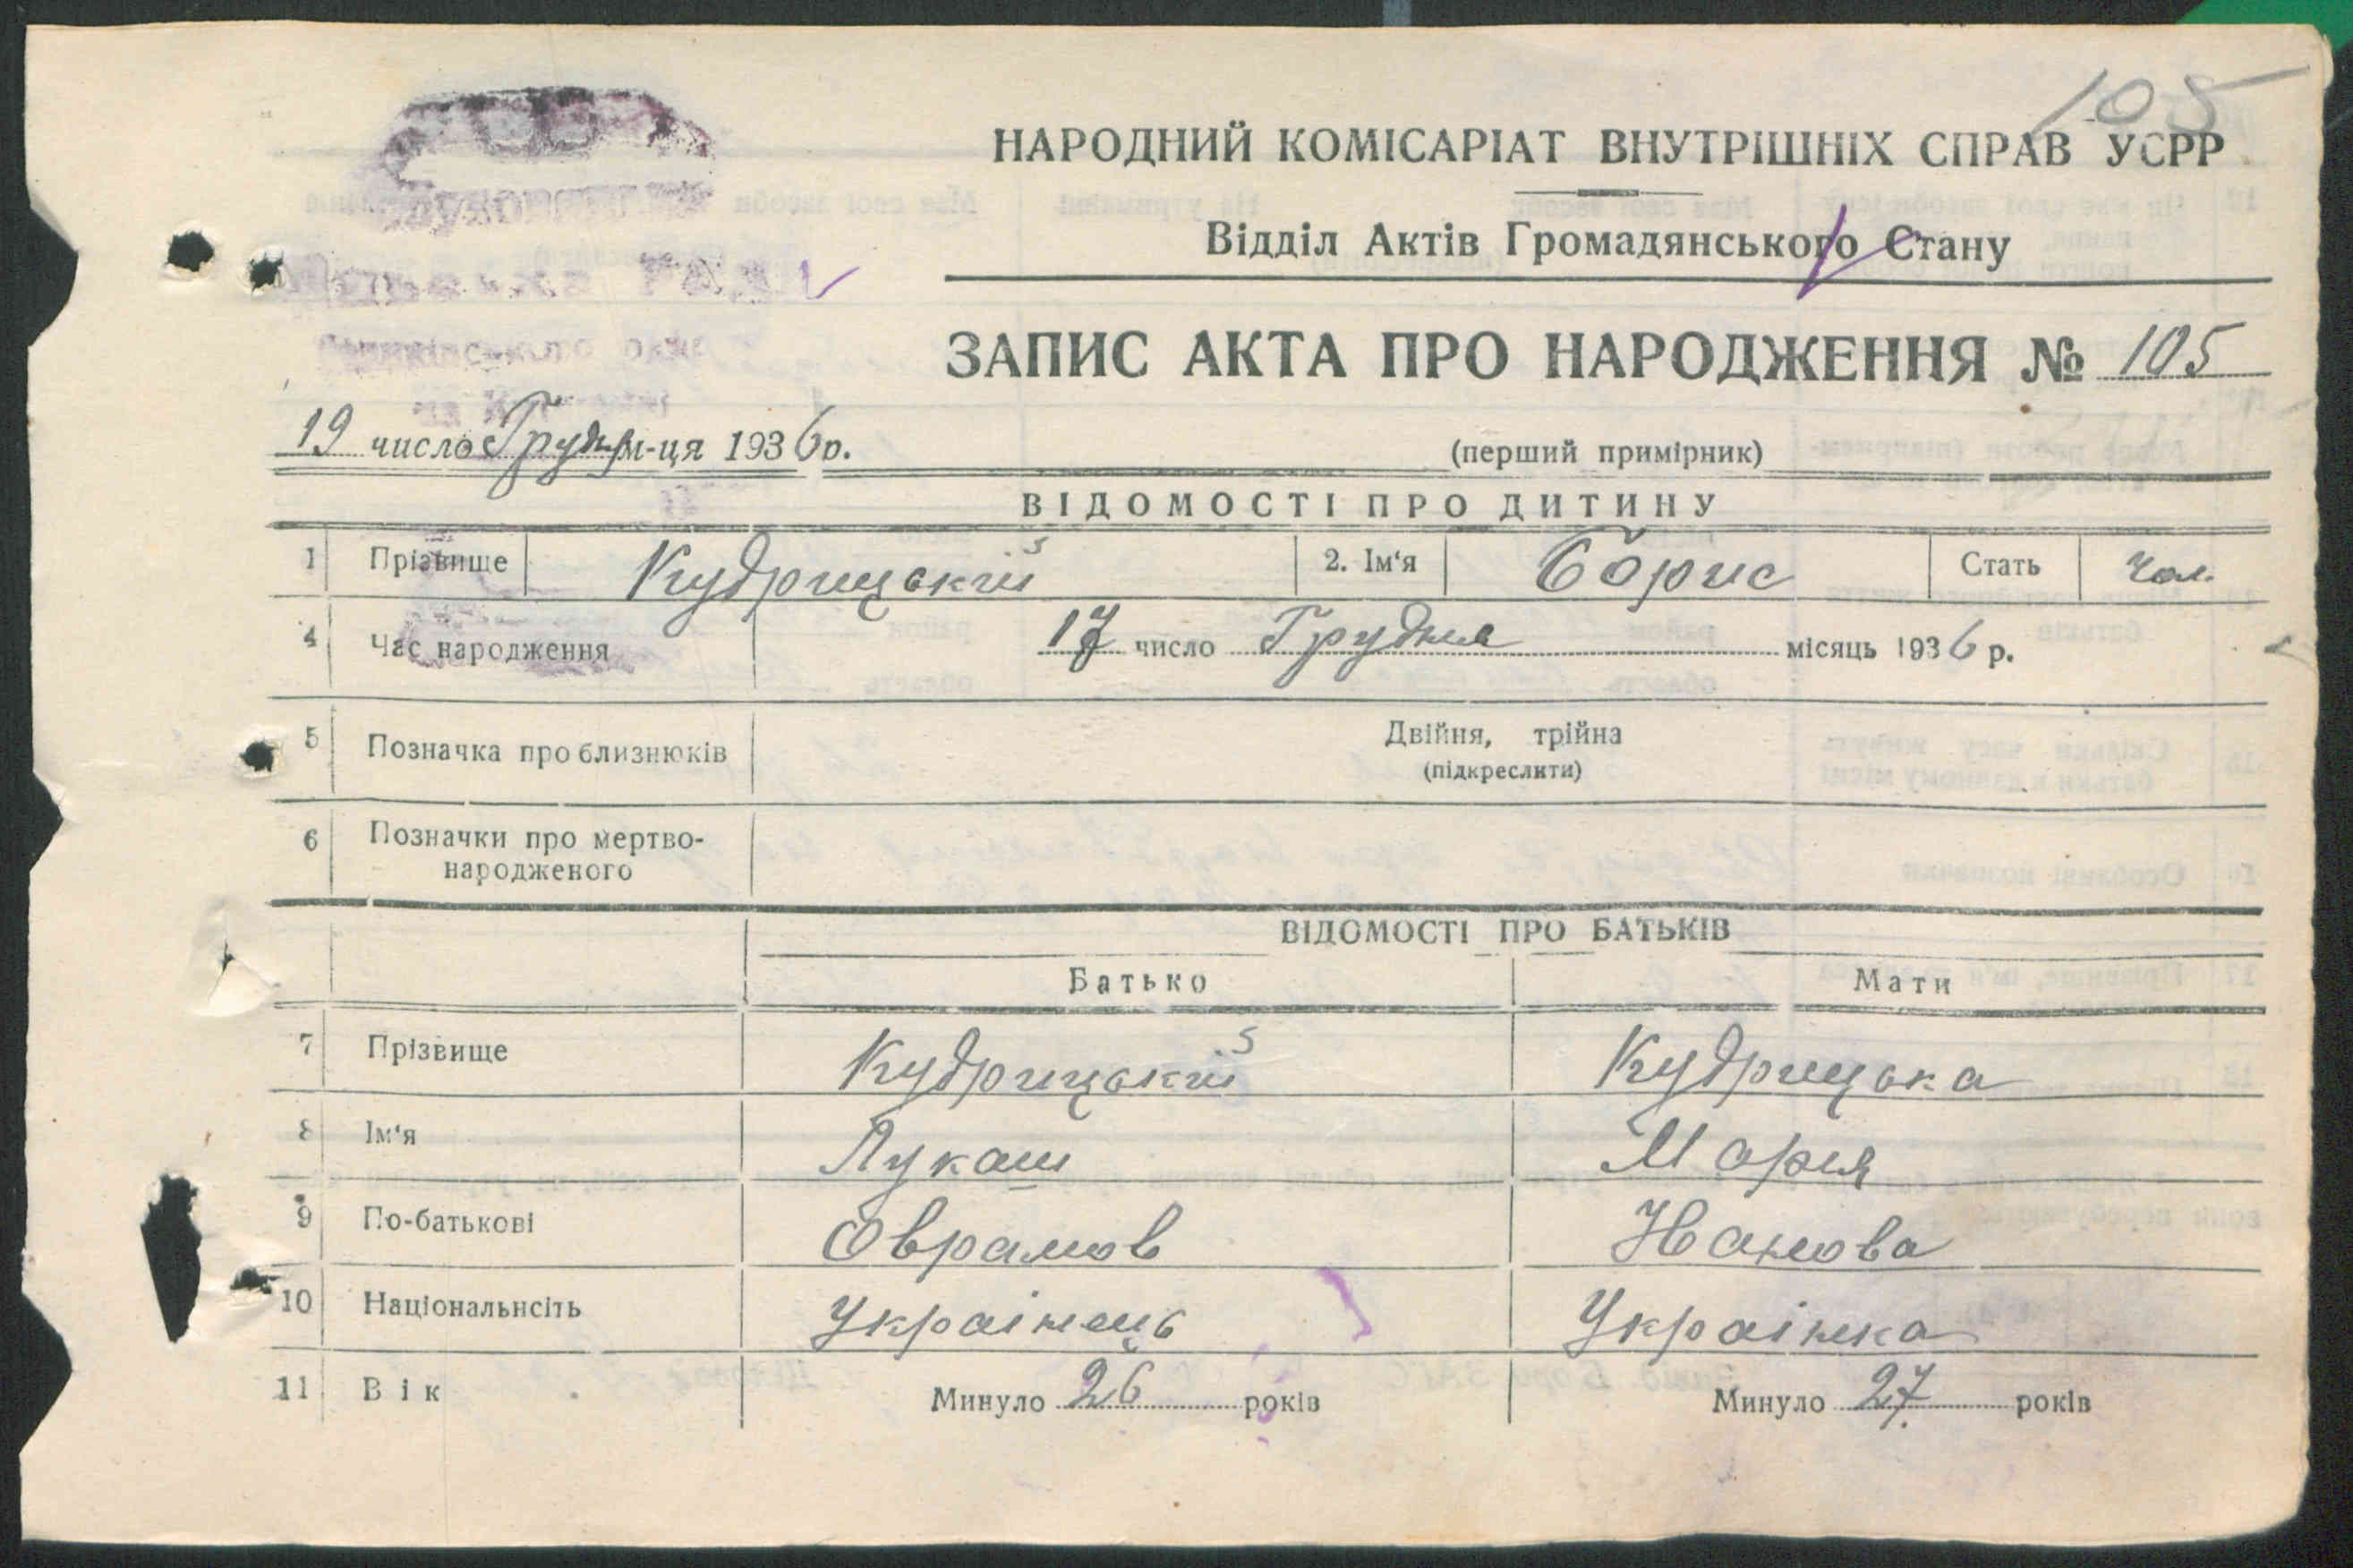 105
НАРОДНИЙ КОМІСАРІАТ ВНУТРІШНІХ СПРАВ УСРР
Відділ Актів Громадянського Стану
ЗАПИС АКТА ПРО НАРОДЖЕННЯ № 105
19 число Грудня м-ця 1936 р.
(перший примірник)
ВІДОМОСТІ ПРО ДИТИНУ
1 Прізвище Кудрицький 2. Ім'я Борис Стать Чол.
4 Час народження 17 число Грудня місяць 1936 р.
5 Позначка про близнюків Двійня, трійна
(підкреслити)
6 Позначки про мертво-
народженого
ВІДОМОСТІ ПРО БАТЬКІВ
Батько Мати
7 Прізвище Кудрицький Кудрицька
8 Ім'я Лукаш Мария
9 По-батькові Оврамов
10 Національнсіть Українець Українка
11 Вік Минуло 26 років Минуло 27 років